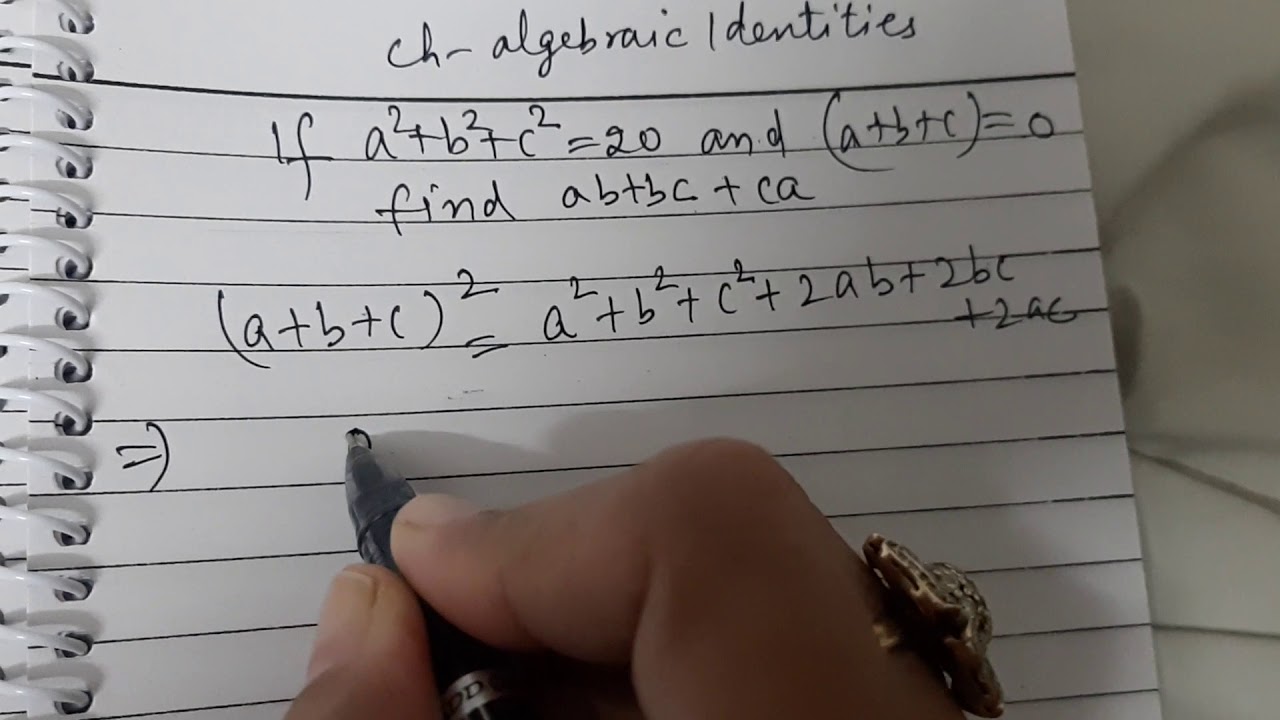 ch- algebraic Identities
If a²+b²+c²=20 and (a+b+c)=0
find ab+bc+ca
(a+b+c)² = a²+b²+c²+2ab+2bc
+2ac
⇒